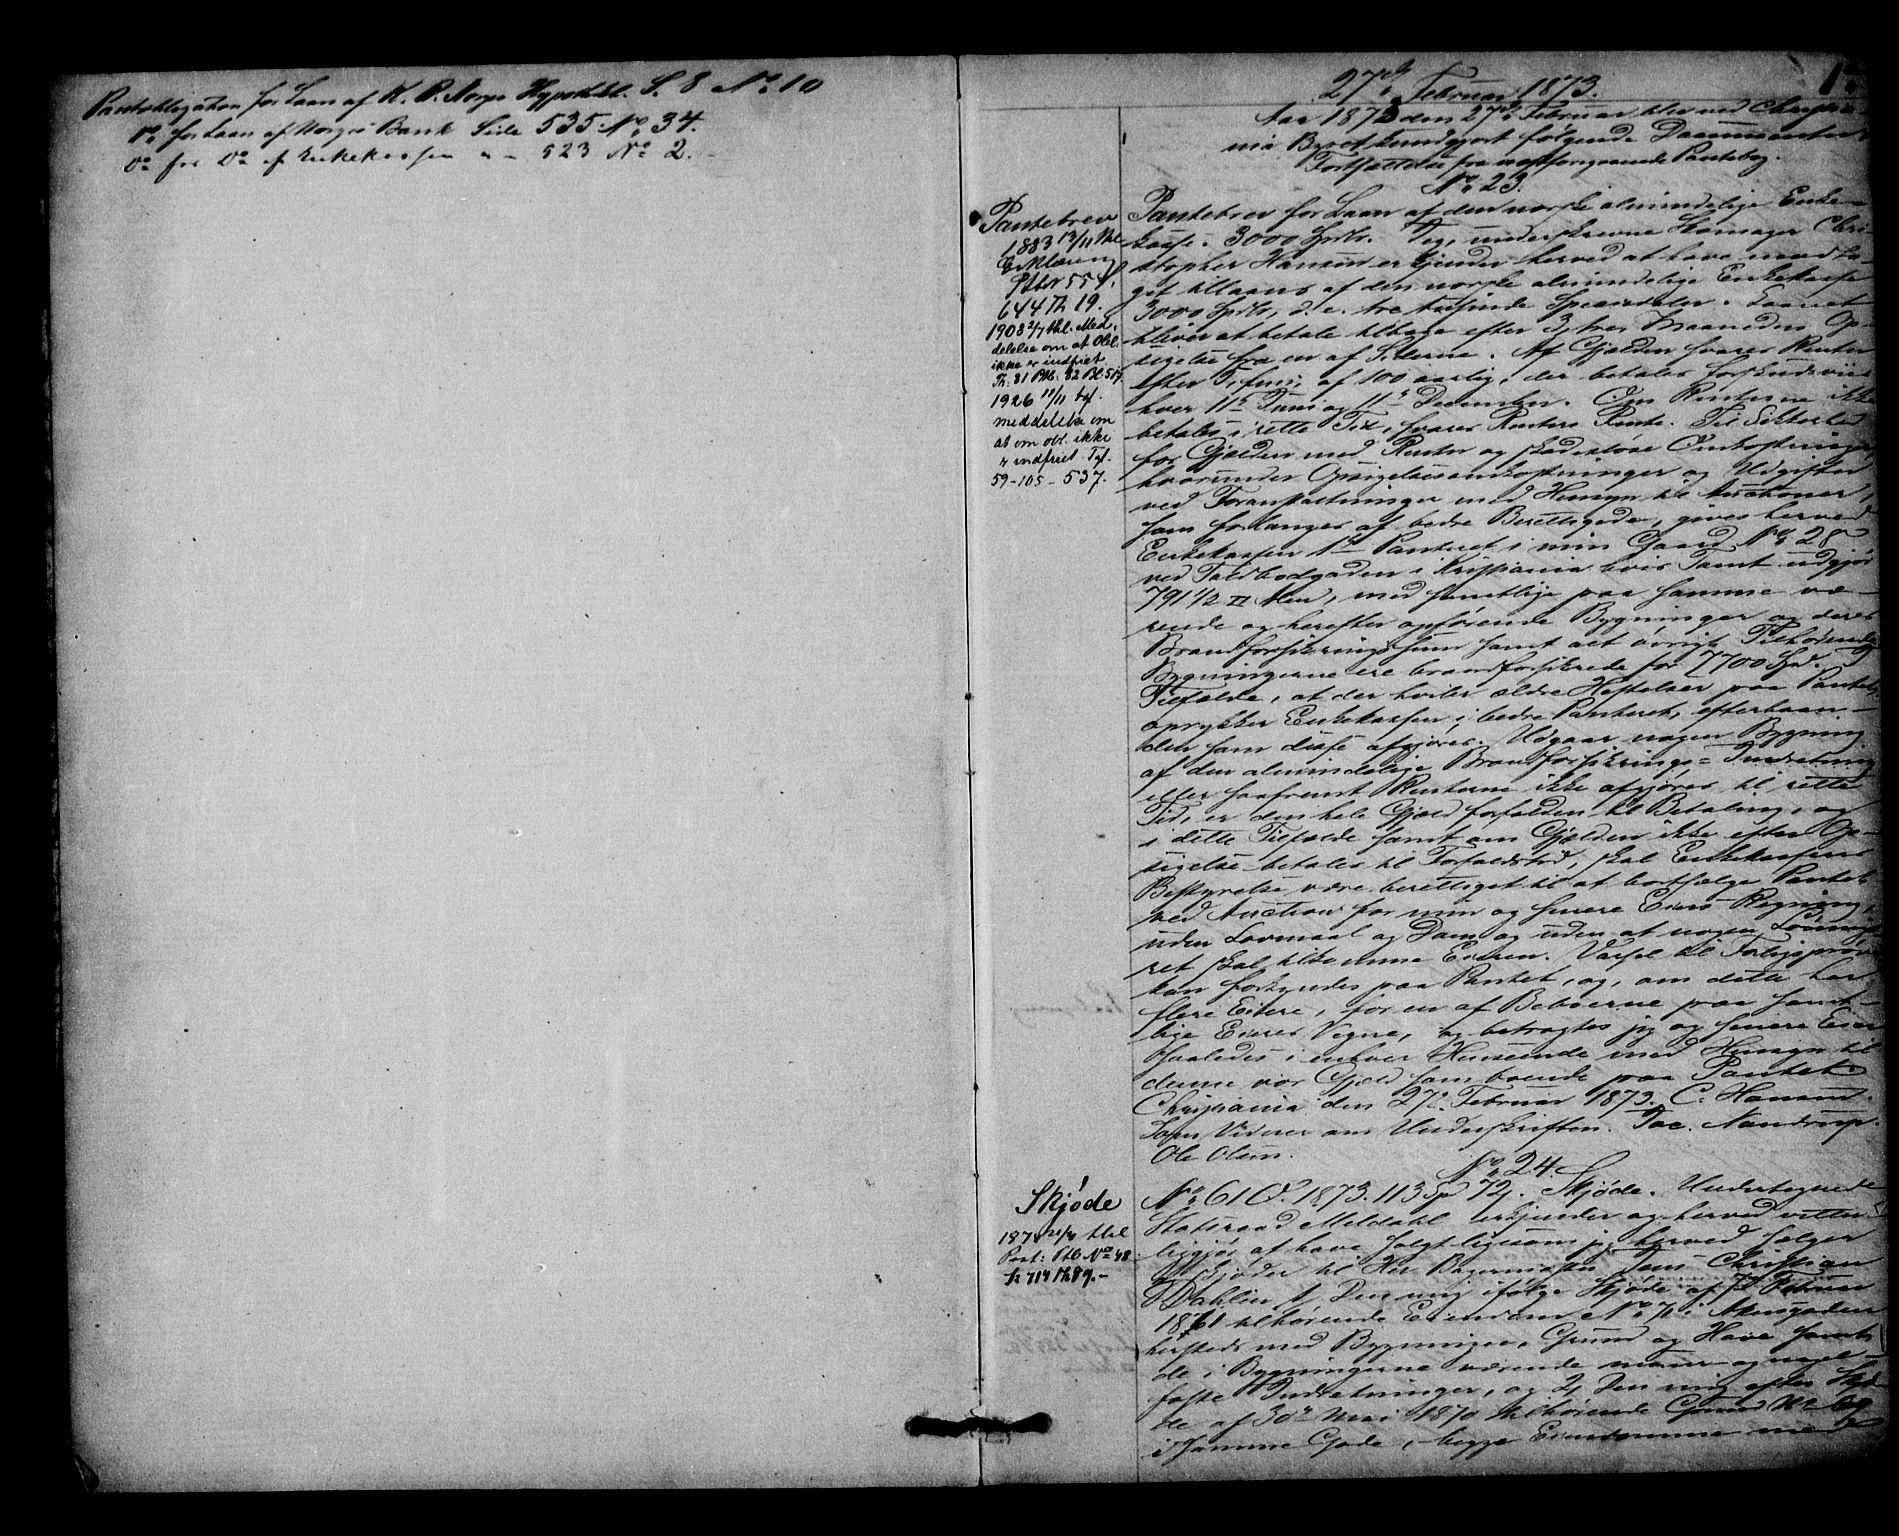 Pantobligation for Laan af K. P. Norges Hypothbk. S. 8 No 10
Do for Laan af Norges Bank Side 535 No 34.
Do for Do af Enkekassen " - 523 No 2.
27de Februar 1873.
Aar 1873 den 27de Februar blev ved Christia-
nia Byret kundgjort følgende Documenter
Fortsættelse fra næstforegaaende Pantebog.
No 23.
Pantebrev
1883 13/11 thl.
Erklæring
Ptbr 55 f.
644 Th 19.
1908 2/7 thl. Med-
delelse om at Obl.
ikke er indfriet
Th. 81 Ptb. 82 Bl. 517
1926 11/11 tgl.
meddelelse om
at om obl. ikke
er indfriet Tgl.
59-105-537.
Pantebrev for Laan af den norske almindelige Enke-
kasse. 3000 Spdlr. Jeg, underskrevne Skomager Chri-
stopher Hansen erkjender herved at have modta-
get tillaans af den norske almindelige Enkekasse
3000 Spdlr, d. e. tre tusinde Speciedaler. Laanet
bliver at betale tilbage efter 3, tre, Maaneders Op-
sigelse fra en af Siderne. Af Gjælden svares Renter
efter 5, fem, af 100 aarlig, der betales forskudsviis
hver 11te Juni og 11te December. Om Renterne ikke
betales i rette Tid, svares Renters Rente. Til Sikkerhed
for Gjælden med Renter og skadesløse Omkostninger,
hvorunder Opsigelsesomkostninger og Udgifter
ved Foranstaltninger med Hensyn til Auctioner,
som forlanges af bedre Berettigede, gives herved
Enkekassen 1ste Panteret i min Gaard No 28
ved Toldbodgaden i Kristiania hvis Tomt udgjør
791 1/2 □ Alen, med samtlige paa samme væ-
rende og herefter opførende Bygninger og deres
Brandforsikringssum samt alt øvrigt Tilhørende
Bygningerne ere brandforsikrede for 7700 Spd.
Tilfælde, at der hviler ældre Heftelser paa Pantet,
oprykker Enkekassen i bedre Panteret, efterhaan-
den som disse afgjøres. Udgaar nogen Bygning
af den almindelige Brandforsikrings-Indretning
eller saafremt Renterne ikke afgjøres til rette
Tid, er den hele Gjæld forfalden til Betaling, og
i dette Tilfælde samt om Gjælden ikke efter Op-
sigelse betales til Forfaldstid, skal Enkekassens
Bestyrelse være berettiget til at bortsælge Pantet
ved Auction for min og senere Eiers Regning,
uden Lovmaal og Dom og uden at nogen Løsnings-
ret skal tilkomme Eieren. Varsel til Forligsprøve
kan forkyndes paa Pantet, og, om dette har
flere Eiere, for en af Beboerne paa samt-
lige Eieres Vegne, og betragtes jeg og senere Eier
saaledes i enhver Henseende med Hensyn til
denne vor Gjæld som boende paa Pantet.
Christiania den 27de Februar 1873. C. Hansen.
Som Vidner om Underskriften. Jac. Nandrup.
Ole Olsen.
No 24.
Skjøde
187 21/4 thl
Prot: Ptb No 48
S. 714 Th 89.-
No 61 O. 1873. 113 Sp 72 s. Skjøde. Undertegnede
Statsraad Meldahl erkjender og herved vitter-
liggjør at have solgt ligesom jeg herved sælger
og skjøder til Her Bagermester Jens Christian
Dahlin 1, Den mig ifølge Skjøde af 7de Februar
1861 tilhørende Eiendom No 7 i Akersgaden
hersteds med Bygninger, Grund og Have samt
de i Bygningerne værende muur- og nagel-
faste Indretninger, og 2, Den mig efter Skjø-
de af 30te Mai 1870 tilhørende Grund No 69
i samme Gade, - begge Eiendomme med